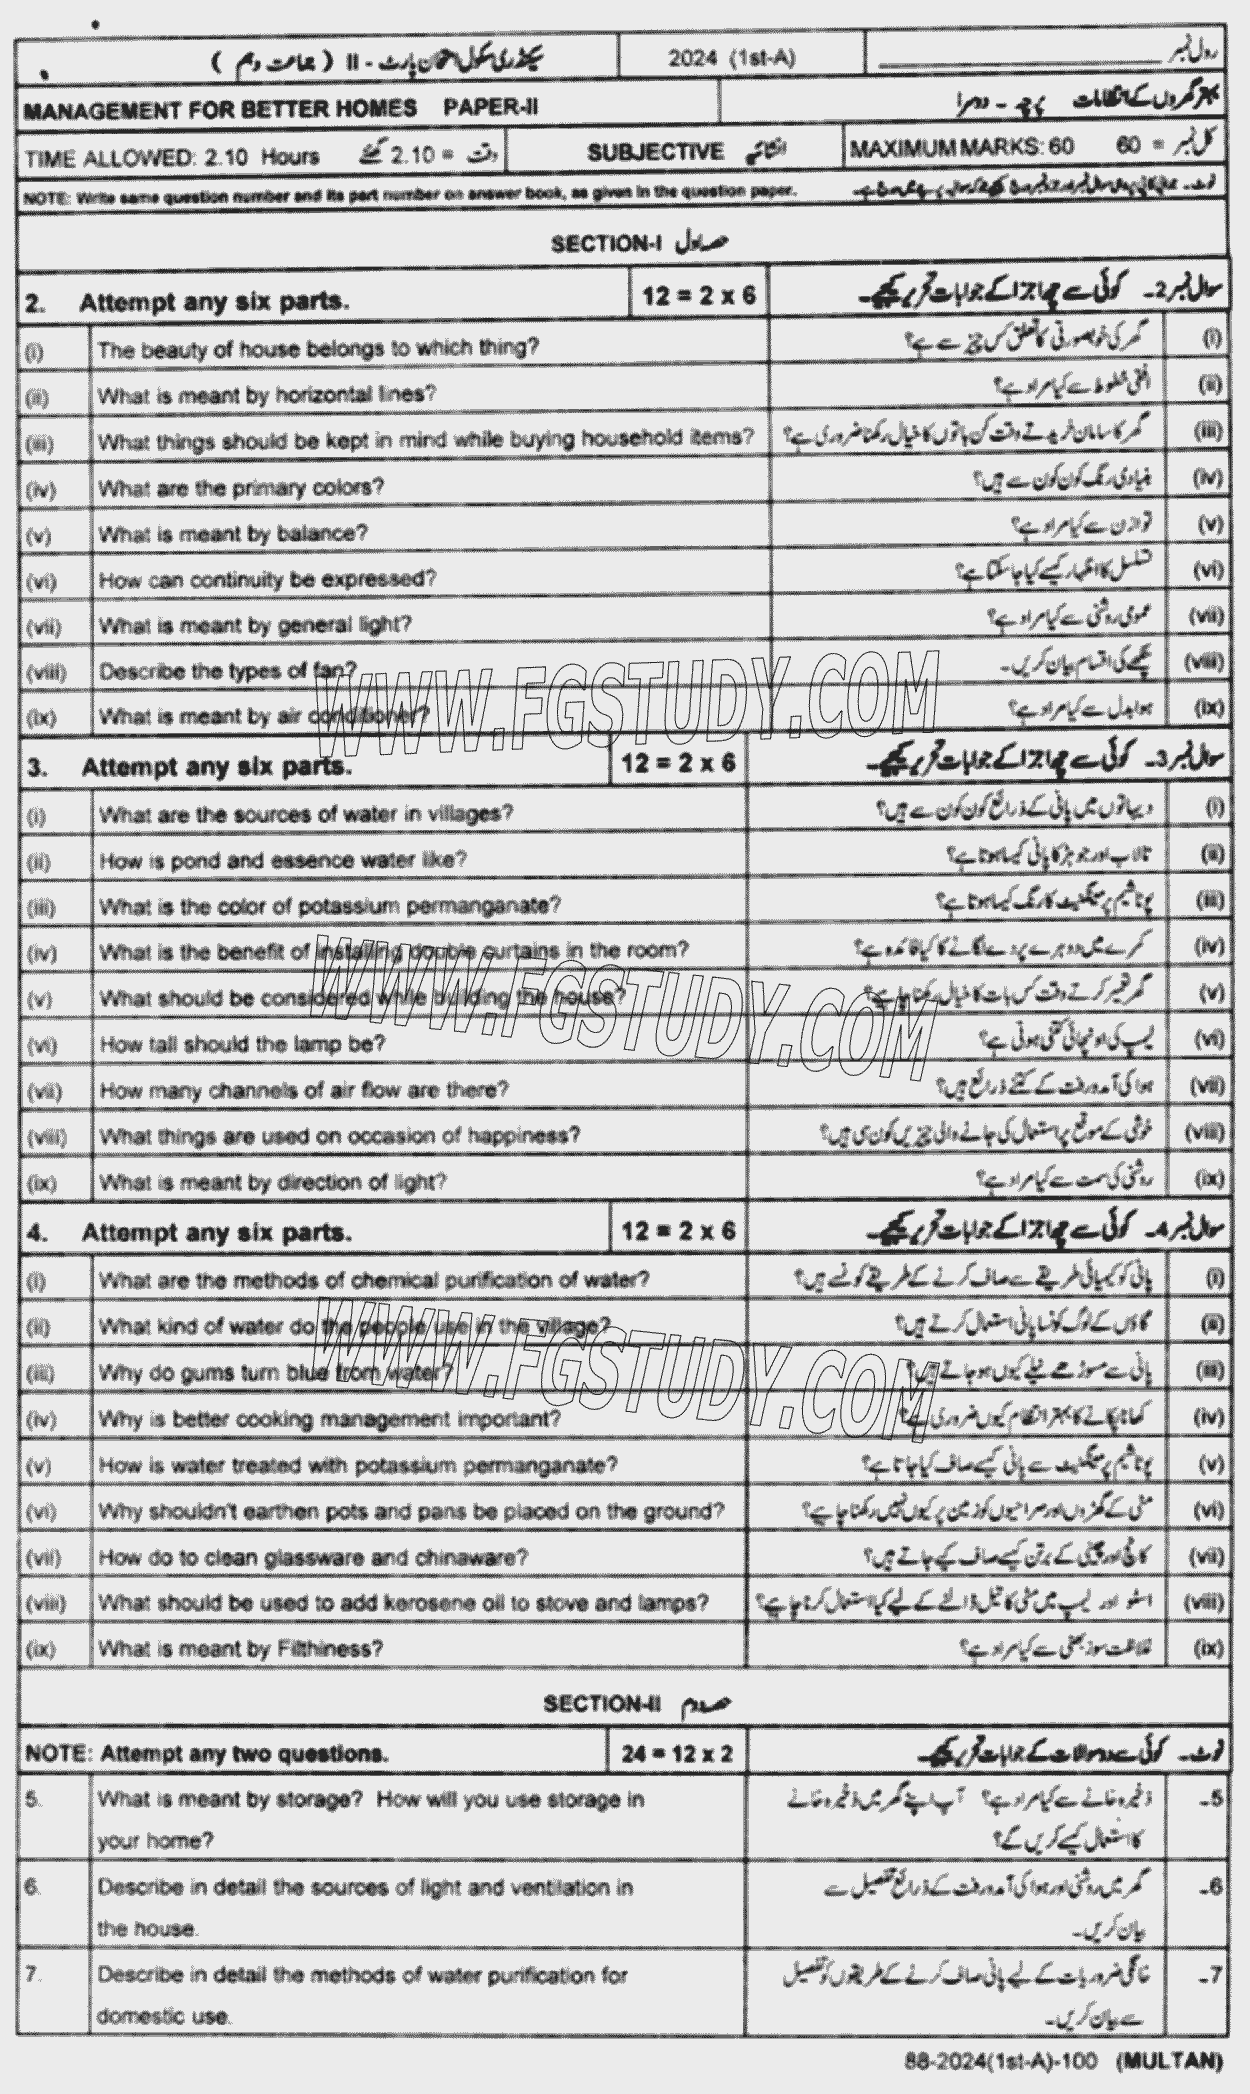 سیکنڈری سکول امتحان پارٹ - II ( جماعت دہم ) 2024 (1st-A) رول نمبر
MANAGEMENT FOR BETTER HOMES PAPER-II بہتر گھروں کے انتظامات پرچہ - دوسرا
TIME ALLOWED: 2.10 Hours وقت = 2.10 گھنٹے SUBJECTIVE انشائیہ MAXIMUM MARKS: 60 کل نمبر = 60
NOTE: Write same question number and its part number on answer book, as given in the question paper.
SECTION-I حصہ اول
2. Attempt any six parts. 12 = 2 x 6 سوال نمبر 2۔ کوئی سے چھ اجزا کے جوابات تحریر کیجیے۔
(i) The beauty of house belongs to which thing? گھر کی خوبصورتی کا تعلق کس چیز سے ہے؟ (i)
(ii) What is meant by horizontal lines? افقی خطوط سے کیا مراد ہے؟ (ii)
(iii) What things should be kept in mind while buying household items? گھر کا سامان خریدتے وقت کن باتوں کا خیال رکھنا ضروری ہے؟ (iii)
(iv) What are the primary colors? بنیادی رنگ کون کون سے ہیں؟ (iv)
(v) What is meant by balance? توازن سے کیا مراد ہے؟ (v)
(vi) How can continuity be expressed? تسلسل کا اظہار کیسے کیا جا سکتا ہے؟ (vi)
(vii) What is meant by general light? عمومی روشنی سے کیا مراد ہے؟ (vii)
(viii) Describe the types of fan? پنکھے کی اقسام بیان کریں۔ (viii)
(ix) What is meant by air conditioner? ہوا بدل سے کیا مراد ہے؟ (ix)
WWW.FGSTUDY.COM
3. Attempt any six parts. 12 = 2 x 6 سوال نمبر 3۔ کوئی سے چھ اجزا کے جوابات تحریر کیجیے۔
(i) What are the sources of water in villages? دیہاتوں میں پانی کے ذرائع کون کون سے ہیں؟ (i)
(ii) How is pond and essence water like? تالاب اور جوہڑ کا پانی کیسا ہوتا ہے؟ (ii)
(iii) What is the color of potassium permanganate? پوٹاشیم پرمینگنیٹ کا رنگ کیسا ہوتا ہے؟ (iii)
(iv) What is the benefit of installing double curtains in the room? کمرے میں دوہرے پردے لگانے کا کیا فائدہ ہے؟ (iv)
(v) What should be considered while building the house? گھر تعمیر کرتے وقت کس بات کا خیال رکھنا چاہیے؟ (v)
WWW.FGSTUDY.COM
(vi) How tall should the lamp be? لیمپ کی اونچائی کتنی ہونی ہے؟ (vi)
(vii) How many channels of air flow are there? ہوا کی آمدورفت کے کتنے ذرائع ہیں؟ (vii)
(viii) What things are used on occasion of happiness? خوشی کے موقع پر استعمال کی جانے والی چیزیں کون سی ہیں؟ (viii)
(ix) What is meant by direction of light? روشنی کی سمت سے کیا مراد ہے؟ (ix)
4. Attempt any six parts. 12 = 2 x 6 سوال نمبر 4۔ کوئی سے چھ اجزا کے جوابات تحریر کیجیے۔
(i) What are the methods of chemical purification of water? پانی کو کیمیائی طریقے سے صاف کرنے کے طریقے کونسے ہیں؟ (i)
(ii) What kind of water do the people use in the village? گاؤں کے لوگ کونسا پانی استعمال کرتے ہیں؟ (ii)
(iii) Why do gums turn blue from water? پانی سے مسوڑھے نیلے کیوں ہو جاتے ہیں؟ (iii)
WWW.FGSTUDY.COM
(iv) Why is better cooking management important? کھانا پکانے کا بہتر انتظام کیوں ضروری ہے؟ (iv)
(v) How is water treated with potassium permanganate? پوٹاشیم پرمینگنیٹ سے پانی کیسے صاف کیا جاتا ہے؟ (v)
(vi) Why shouldn't earthen pots and pans be placed on the ground? مٹی کے گھڑوں اور صراحیوں کو زمین پر کیوں نہیں رکھنا چاہیے؟ (vi)
(vii) How do to clean glassware and chinaware? کانچ اور چینی کے برتن کیسے صاف کیے جاتے ہیں؟ (vii)
(viii) What should be used to add kerosene oil to stove and lamps? اسٹو اور لیمپ میں مٹی کا تیل ڈالنے کے لیے کیا استعمال کرنا چاہیے؟ (viii)
(ix) What is meant by Filthiness? غلاظت سوز بھٹی سے کیا مراد ہے؟ (ix)
SECTION-II حصہ دوم
NOTE: Attempt any two questions. 24 = 12 x 2 نوٹ۔ کوئی سے دو سوالات کے جوابات تحریر کیجیے۔
5. What is meant by storage? How will you use storage in ذخیرہ خانے سے کیا مراد ہے؟ آپ اپنے گھر میں ذخیرہ خانے 5۔
your home? کا استعمال کیسے کریں گے؟
6. Describe in detail the sources of light and ventilation in گھر میں روشنی اور ہوا کی آمدورفت کے ذرائع تفصیل سے 6۔
the house. بیان کریں۔
7. Describe in detail the methods of water purification for خانگی ضروریات کے لیے پانی صاف کرنے کے طریقوں کو تفصیل 7۔
domestic use. سے بیان کریں۔
88-2024(1st-A)-100 (MULTAN)